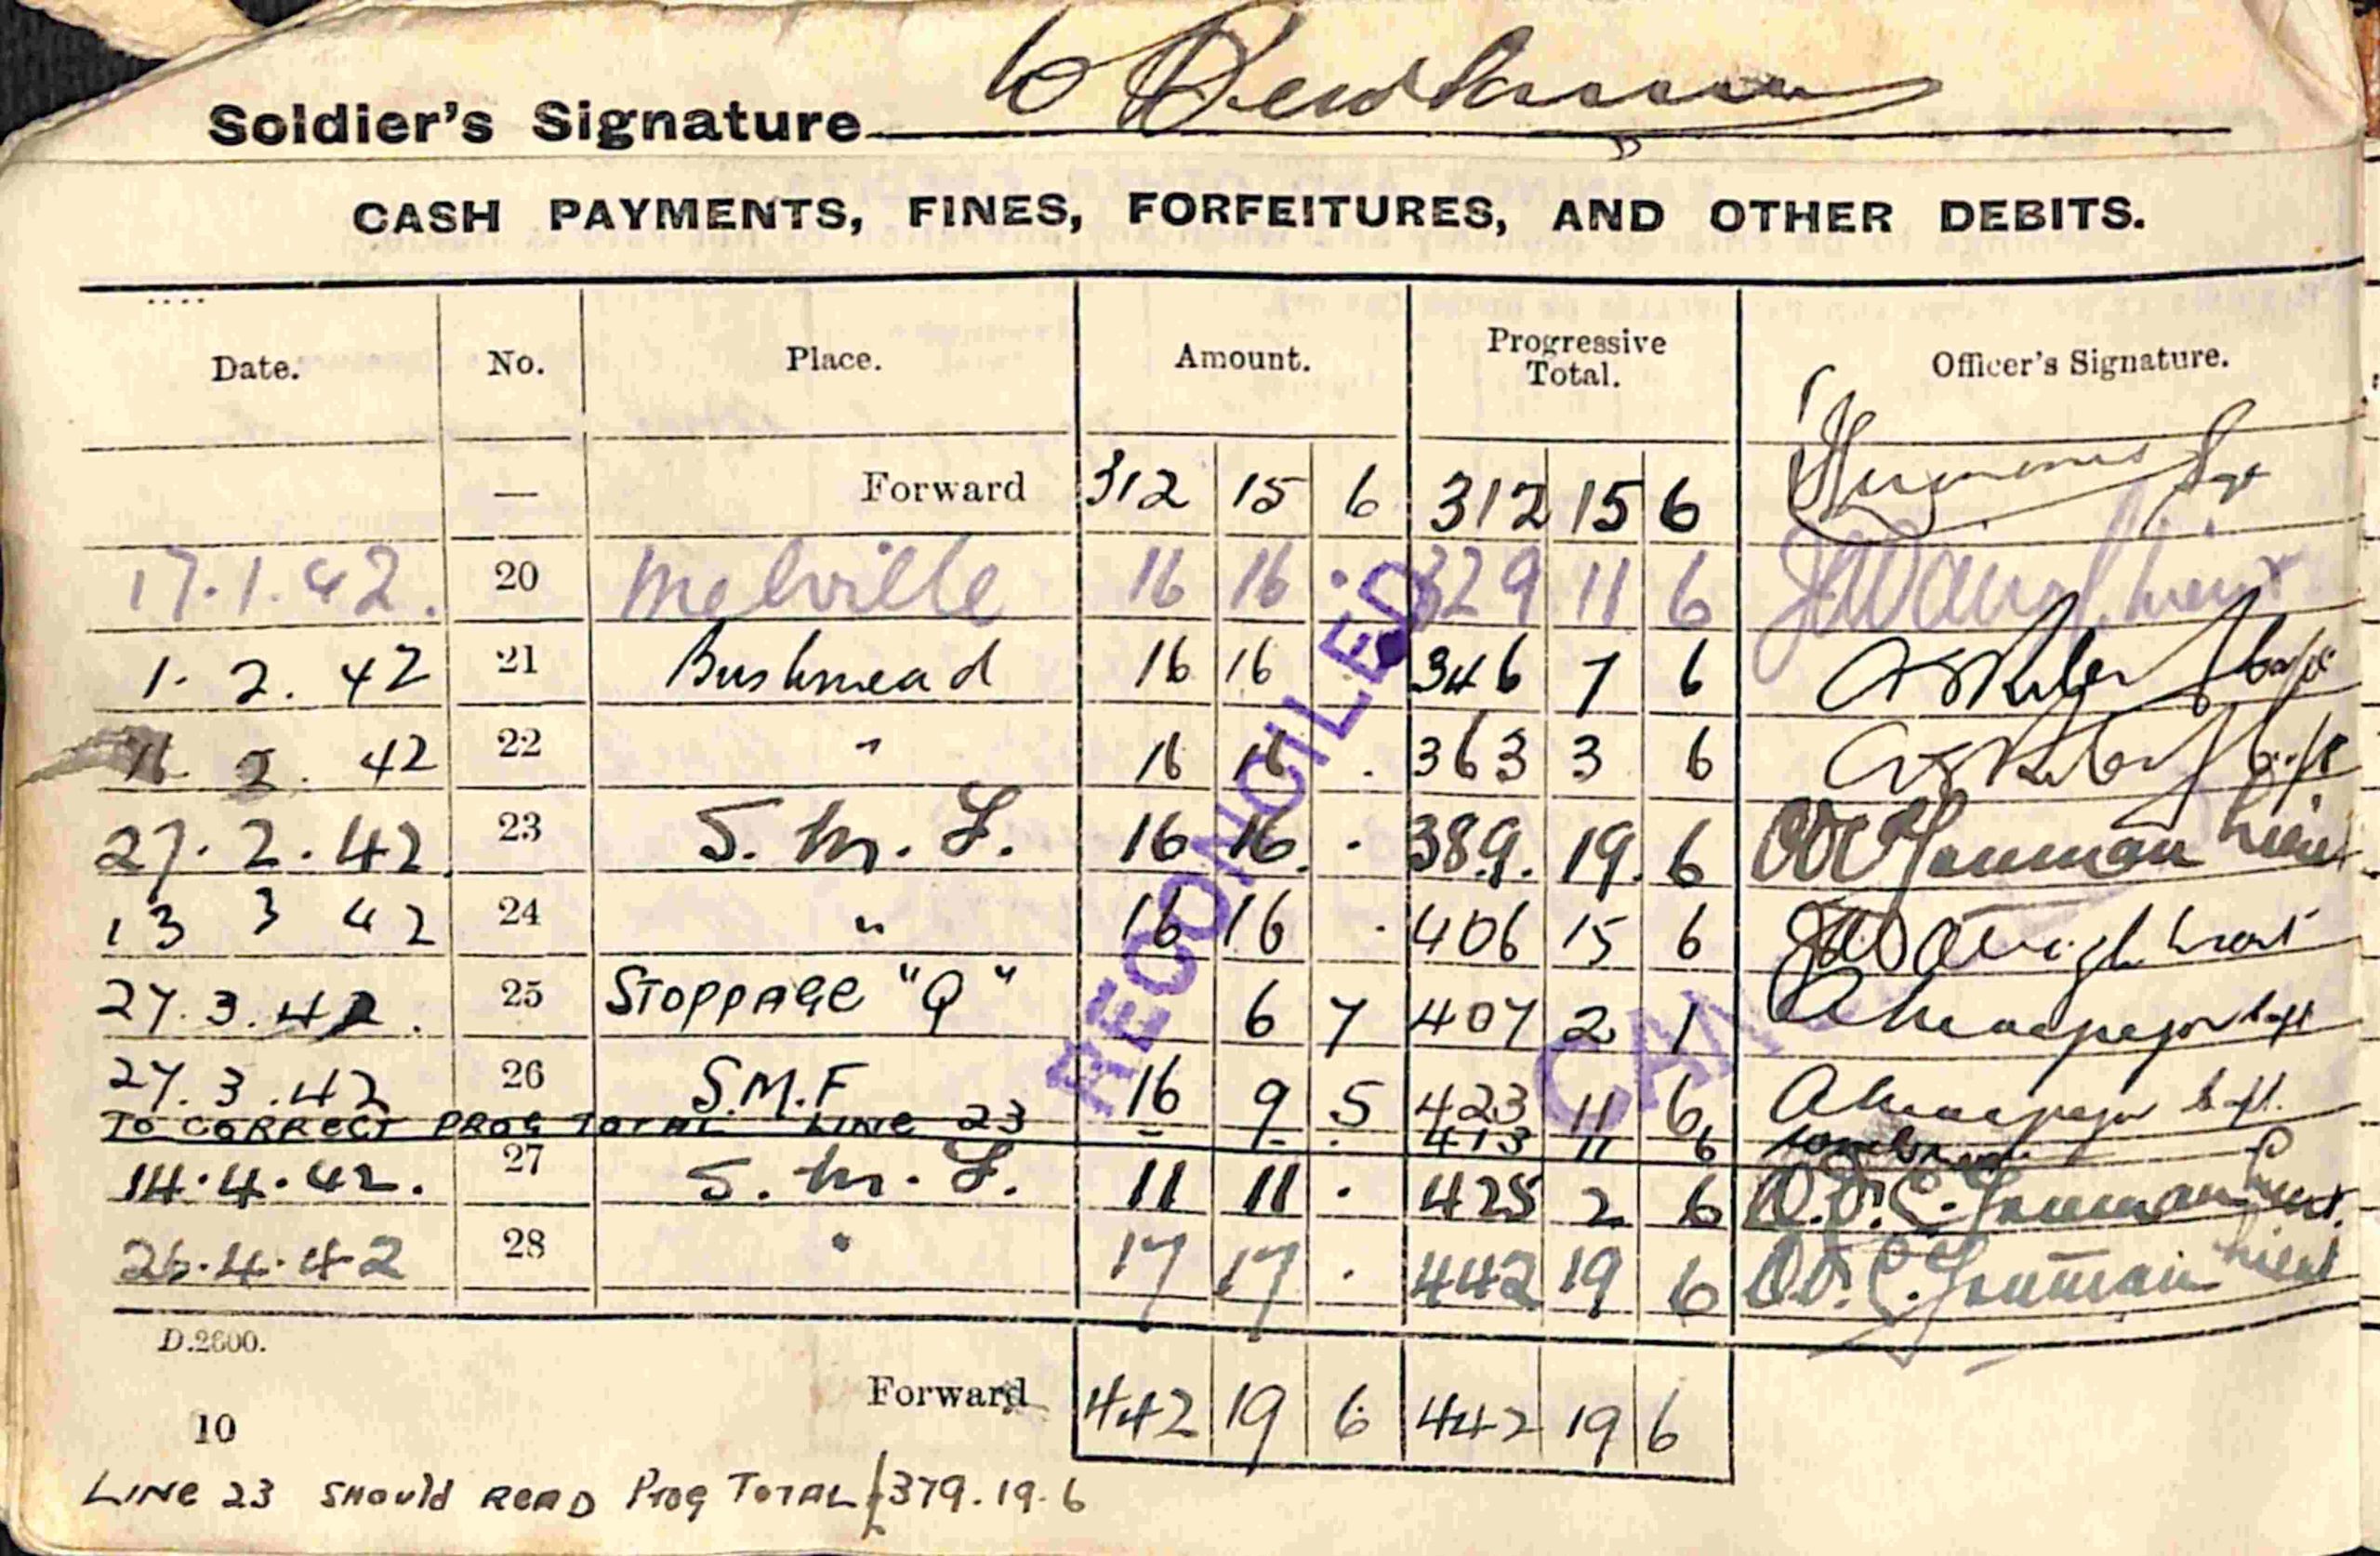 Soldier's Signature
CASH PAYMENTS, FINES, FORFEITURES, AND OTHER DEBITS.
Date. No. Place. Amount. Progressive Total. Officer's Signature.
— Forward 312 15 6 312 15 6
17.1.42. 20 Melville 16 16 . 329 11 6
1. 2. 42 21 Bushmead 16 16 346 7 6
2. 42 22 " 16 16 . 363 3 6
27.2.42. 23 S. M. F. 16 16. . 389. 19. 6
13 3 42 24 " 16 16 . 406 15 6
27.3.42. 25 STOPPAGE "Q" 6 7 407 2 1
27.3.42 26 S.M.F 16 9 5 423 11 6
TO CORRECT PROG TOTAL LINE 23 - - . 413 11 6
14.4.42. 27 S. M. F. 11 11 . 425 2 6
26.4.42 28 " 17 17 . 442 19 6
RECONCILED
D.2600.
Forward 442 19 6 442 19 6
10
LINE 23 SHOULD READ Prog TOTAL £379.19.6